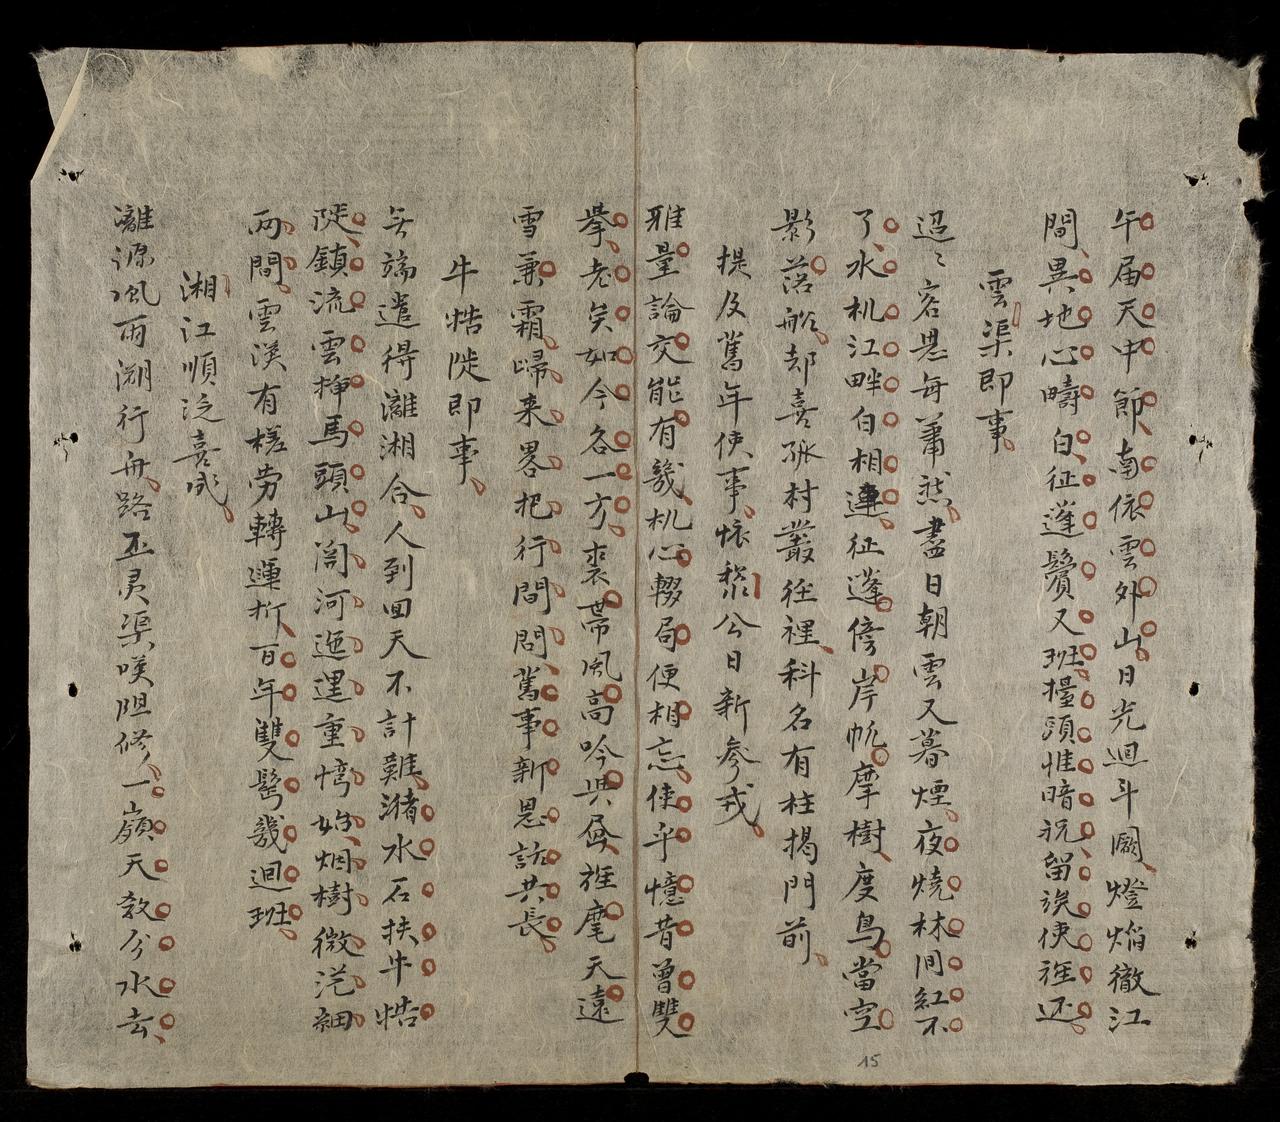 午届天中節南依雲外山日光迴斗闕燈焰徹江
間異地心疇白征蓬鬢又班擡頭惟暗祝留族使旌还
雲渠即事
迢〻客思每蕭然盡日朝雲又暮煙夜燒林间紅不
了水机江畔白相連征蓬傍岸帆摩樹度鳥當空
影落船却喜孤村叢徑裡科名有柱揭門前
提及舊年使事懷黎公日新參戎
雅量論交能有幾机心輟局便相忘使乎憶昔曾雙
擧老矣如今各一方裘帶風高吟與昼旌麾天遠
雪兼霜歸来畧把行間問舊事新思訪共長
牛牿陡即事
無端遣得灕湘合人到回天不計難瀦水石扶牛牿
陡鎮流雲擁馬頭山閤河迤邐重灣始烟樹微茫細
兩間雲漢有槎劳轉運折百年雙髩幾迴班
湘江順泛喜成
灕源風雨溯行舟路丕灵渠嘆阻修一嶺天教分水去
15